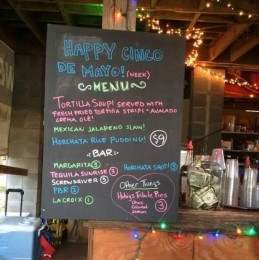 HAPPY CINCO
DE MAYO! (WEEK)
MENU
TORTILLA SOUP! SERVED WITH
FRESH FRIED TORTILLA STRIPS + AVOCADO
CREMA. OLÉ!
MEXICAN JALAPENO SLAW!
HORCHATA RICE PUDDING!
$9
BAR:
MARGARITA 5
HORCHATA SHOT!
TEQUILA SUNRISE 5
SCREWDRIVER 5
PBR 2
LA CROIX 1
Other Things
Tribute Pies
3